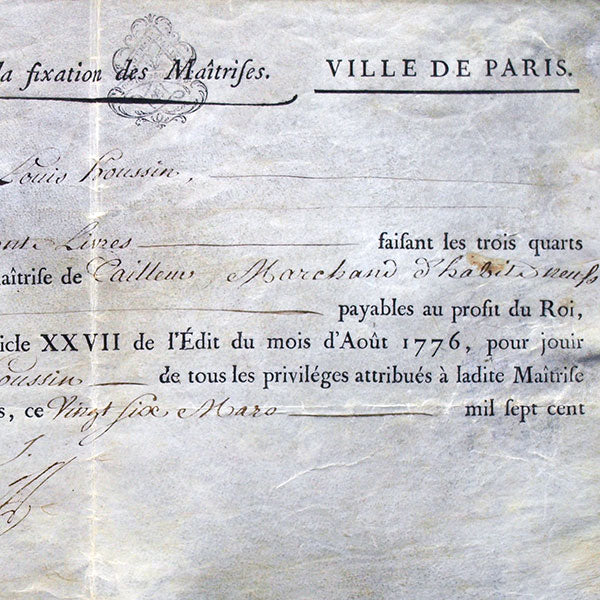 la fixation des Maîtriſes. VILLE DE PARIS.
Louis houssin,
Livres faiſant les trois quarts
aîtriſe de Tailleur, Marchand d'habits neufs
payables au profit du Roi,
icle XXVII de l'Édit du mois d'Août 1776, pour jouir
oussin de tous les priviléges attribués à ladite Maîtriſe
s, ce Vingt six Mars mil ſept cent